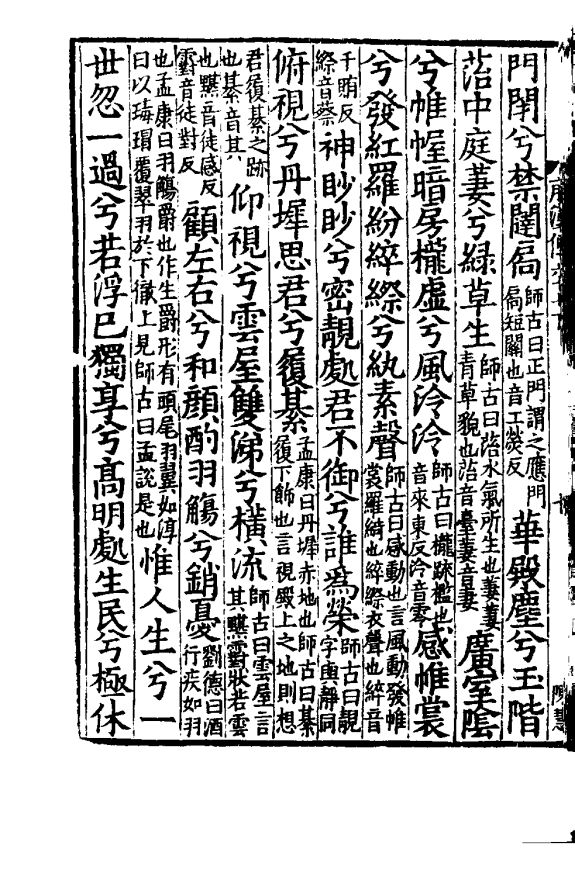 門閉兮禁闥扃師古曰正門謂之應門扃短關也音工熒反華殿塵兮玉階
菭中庭萋兮綠草生師古曰菭水氣所生也萋萋青草貌也菭音臺萋音妻廣室陰
兮帷幄暗房櫳虛兮風泠泠師古曰櫳疏檻也音來東反泠音零感帷裳
兮發紅羅紛綷縩兮紈素聲師古曰感動也言風動發帷裳羅綺也綷縩衣聲也綷音
千賄反縩音蔡神眇眇兮密靚處君不御兮誰爲榮師古曰靚字與靜同
俯視兮丹墀思君兮履綦孟康曰丹墀赤地也師古曰綦履下飾也言視殿上之地則想
君履綦之跡也綦音其仰視兮雲屋雙涕兮橫流師古曰雲屋言其黮䨴狀若雲
也黮音徒感反䨴音徒對反顧左右兮和顏酌羽觴兮銷憂劉德曰酒行疾如羽
也孟康曰羽觴爵也作生爵形有頭尾羽翼如淳曰以瑇瑁覆翠羽於下徹上見師古曰孟說是也惟人生兮一
世忽一過兮若浮巳獨享兮高明處生民兮極休